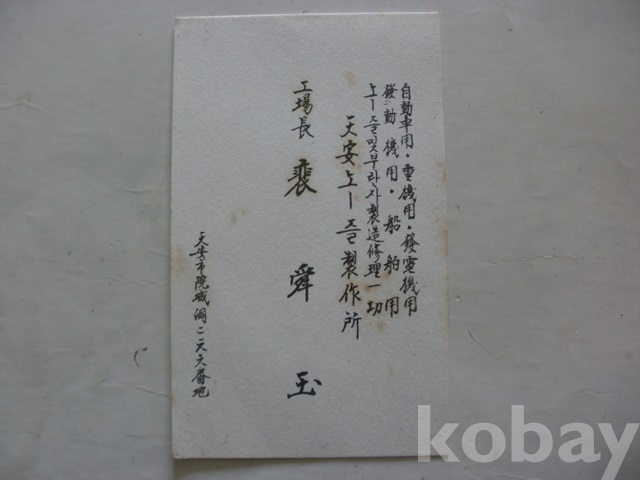 自動車用・重機用・發電機用
發動機用・船舶用
노ー즐및부란자製造修理一切
天安노ー즐製作所
工場長 裵舜玉
天安市院城洞二六六番地
kobay